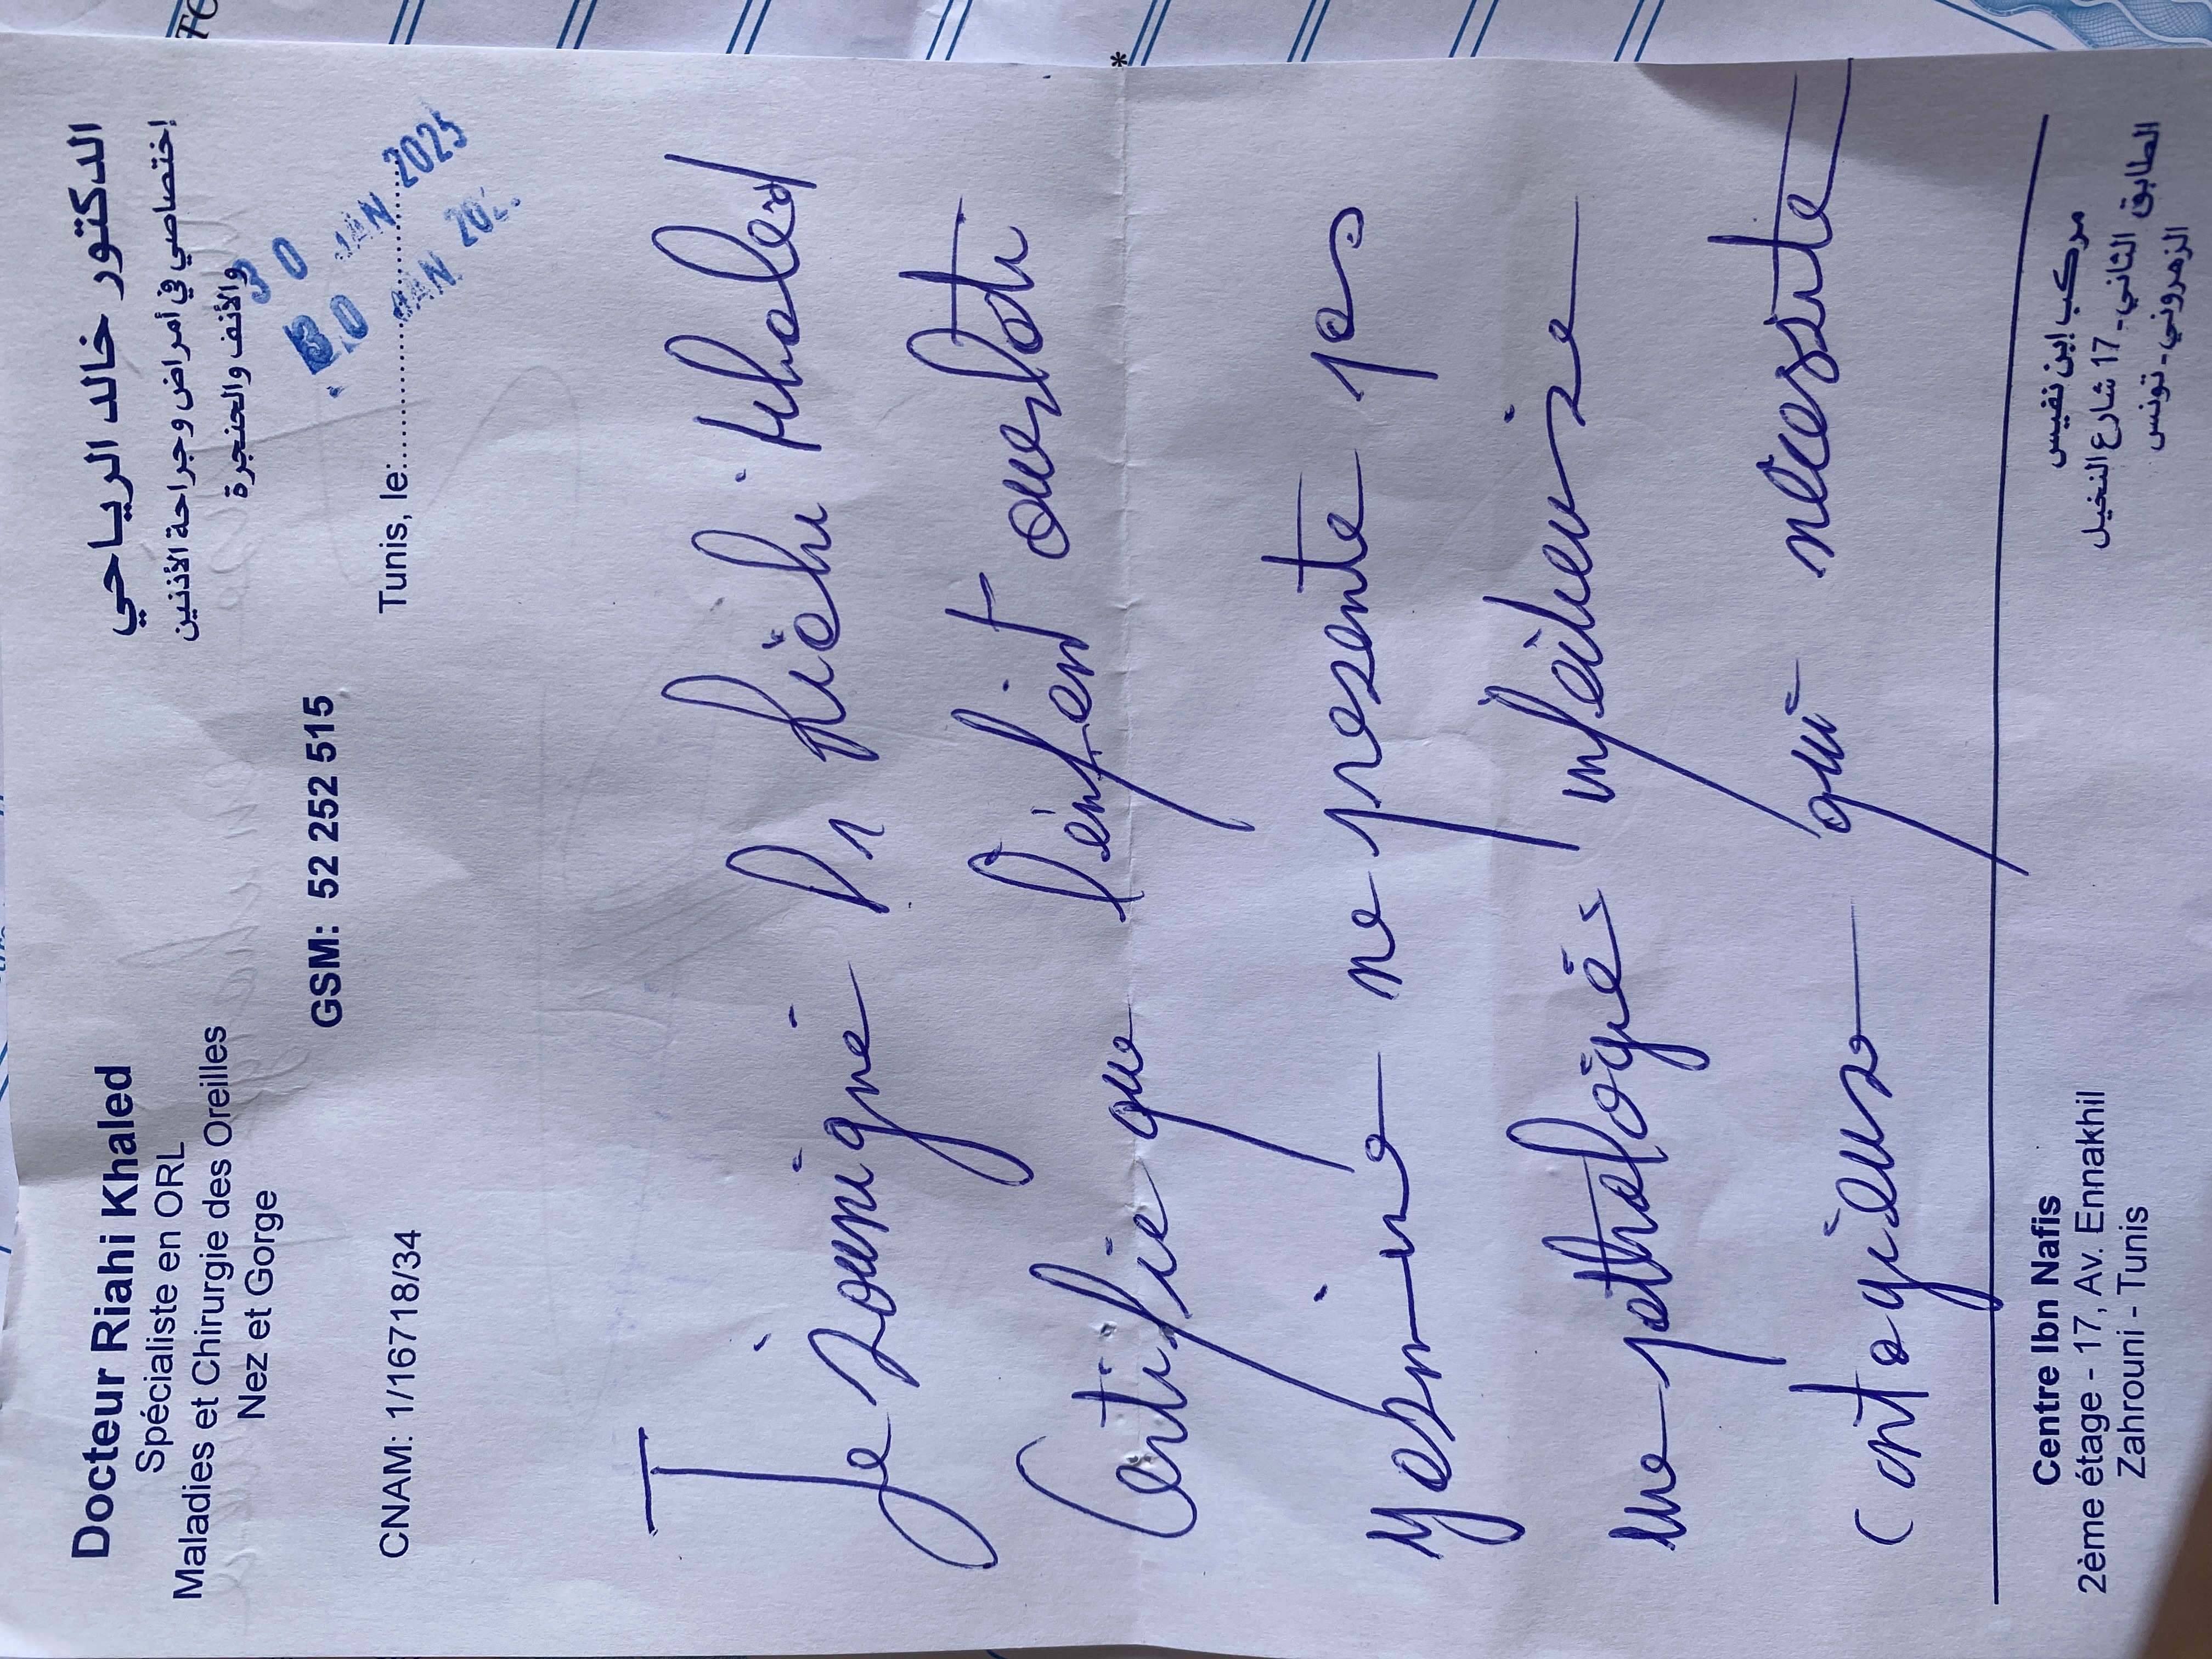 Docteur Riahi Khaled
Spécialiste en ORL
Maladies et Chirurgie des Oreilles
Nez et Gorge
الدكتور خالد الرياحي
إختصاصي في أمراض وجراحة الأذنين
والأنف والحنجرة
GSM: 52 252 515
CNAM: 1/16718/34
Tunis, le:
30 JAN 2025
30 JAN 202
Je sousigné Dr Riahi Khaled
Certifie que l'enfant
Yasmine ne presente pas
une pathologie infectieuse
contagieuse qui necessite
Centre Ibn Nafis
2ème étage - 17, Av. Ennakhil
Zahrouni - Tunis
مركب إبن نفيس
الطابق الثاني - 17 شارع النخيل
الزهروني - تونس